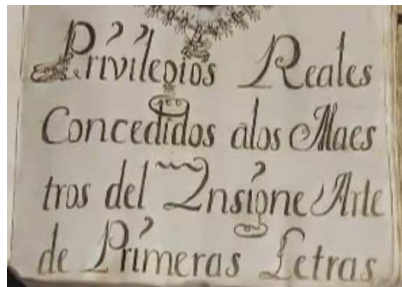 Privilegios Reales
Concedidos alos Maes
tros del Insigne Arte
de Primeras Letras